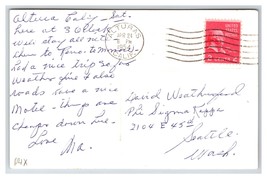 Alturas Calif. Sat.
here at 3 O'clock
will stay all nite
then to Reno tomorrow
Had a nice trip so far
weather fine & also
roads
nice
Motel - things are
down
Love
Ma.
David Weatherford
Phi Sigma Kappa
2104 E 45th
Seattle
Wash.